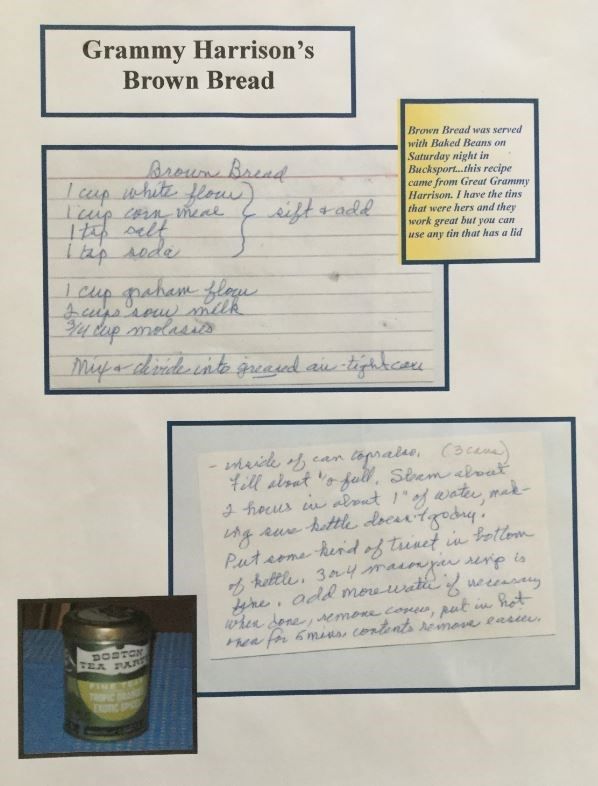 Grammy Harrison's
Brown Bread
Brown Bread was served
with Baked Beans on
Saturday night in
Bucksport...this recipe
came from Great Grammy
Harrison. I have the tins
that were hers and they
work great but you can
use any tin that has a lid
Brown Bread
1 cup white flour
1 cup corn meal
1 tsp salt
1 tsp soda
sift & add
1 cup graham flour
2 cups sour milk
3/4 cup molasses
Mix & divide into greased air-tight cans
- inside of can tops also. (3 cans)
Fill about full. Steam about
2 hours in about 1" of water, mak-
ing sure kettle doesn't go dry.
Put some kind of trivet in bottom
of kettle. 3 or 4 mason jar rings is
fine. Add more water if necessary
When done, remove covers, put in hot
oven for 5 mins. contents remove easier.
BOSTON
TEA PARTY
FINE TEAS
TROPIC ORANGE
EXOTIC SPICE